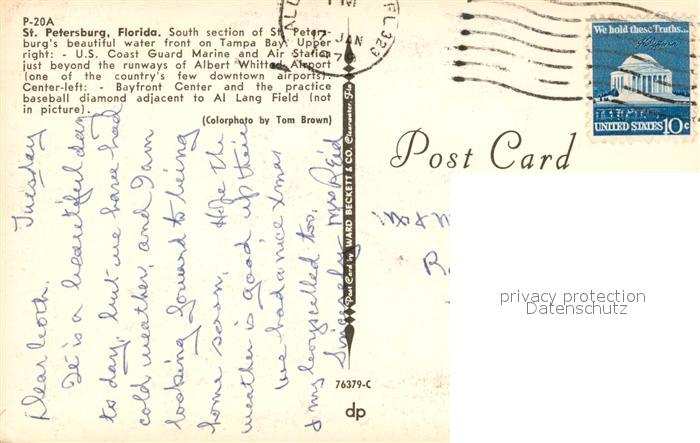 P-20A
St. Petersburg, Florida. South section of St. Peters-
burg's beautiful water front on Tampa Bay. Upper
right: - U.S. Coast Guard Marine and Air Station
just beyond the runways of Albert Whitted Airport
(one of the country's few downtown airports).
Center-left: - Bayfront Center and the practice
baseball diamond adjacent to Al Lang Field (not
in picture).
(Colorphoto by Tom Brown)
PM
JAN
FL 323
We hold these Truths...
UNITED STATES 10c
Post Card
Post Card by WARD BECKETT & CO. Clearwater, Fla.
Tuesday
Dear
It is a beautiful day
to day, but we have had
cold weather, and I am
looking forward to being
home soon. Hope the
weather is good up there
We had a nice Xmas
& my boys called too.
Sincerely Mrs Reid
76379-C
dp
privacy protection
Datenschutz